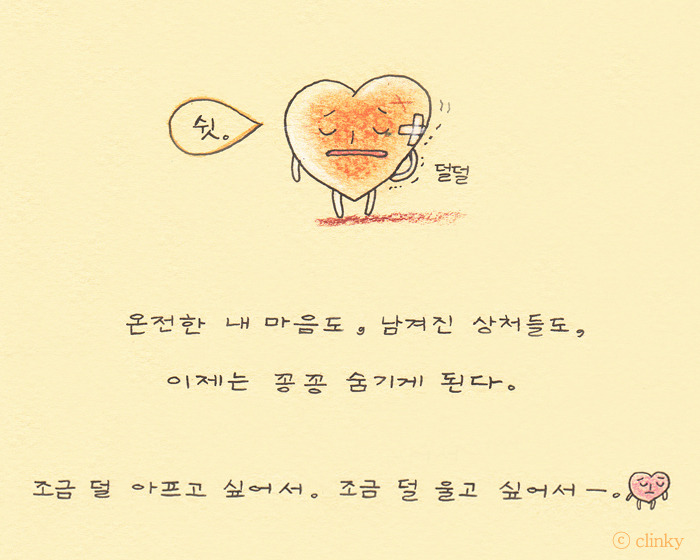 쉿。
덜덜
온전한 내 마음도, 남겨진 상처들도,
이제는 꽁꽁 숨기게 된다。
조금 덜 아프고 싶어서。 조금 덜 울고 싶어서ー。
ⓒ clinky